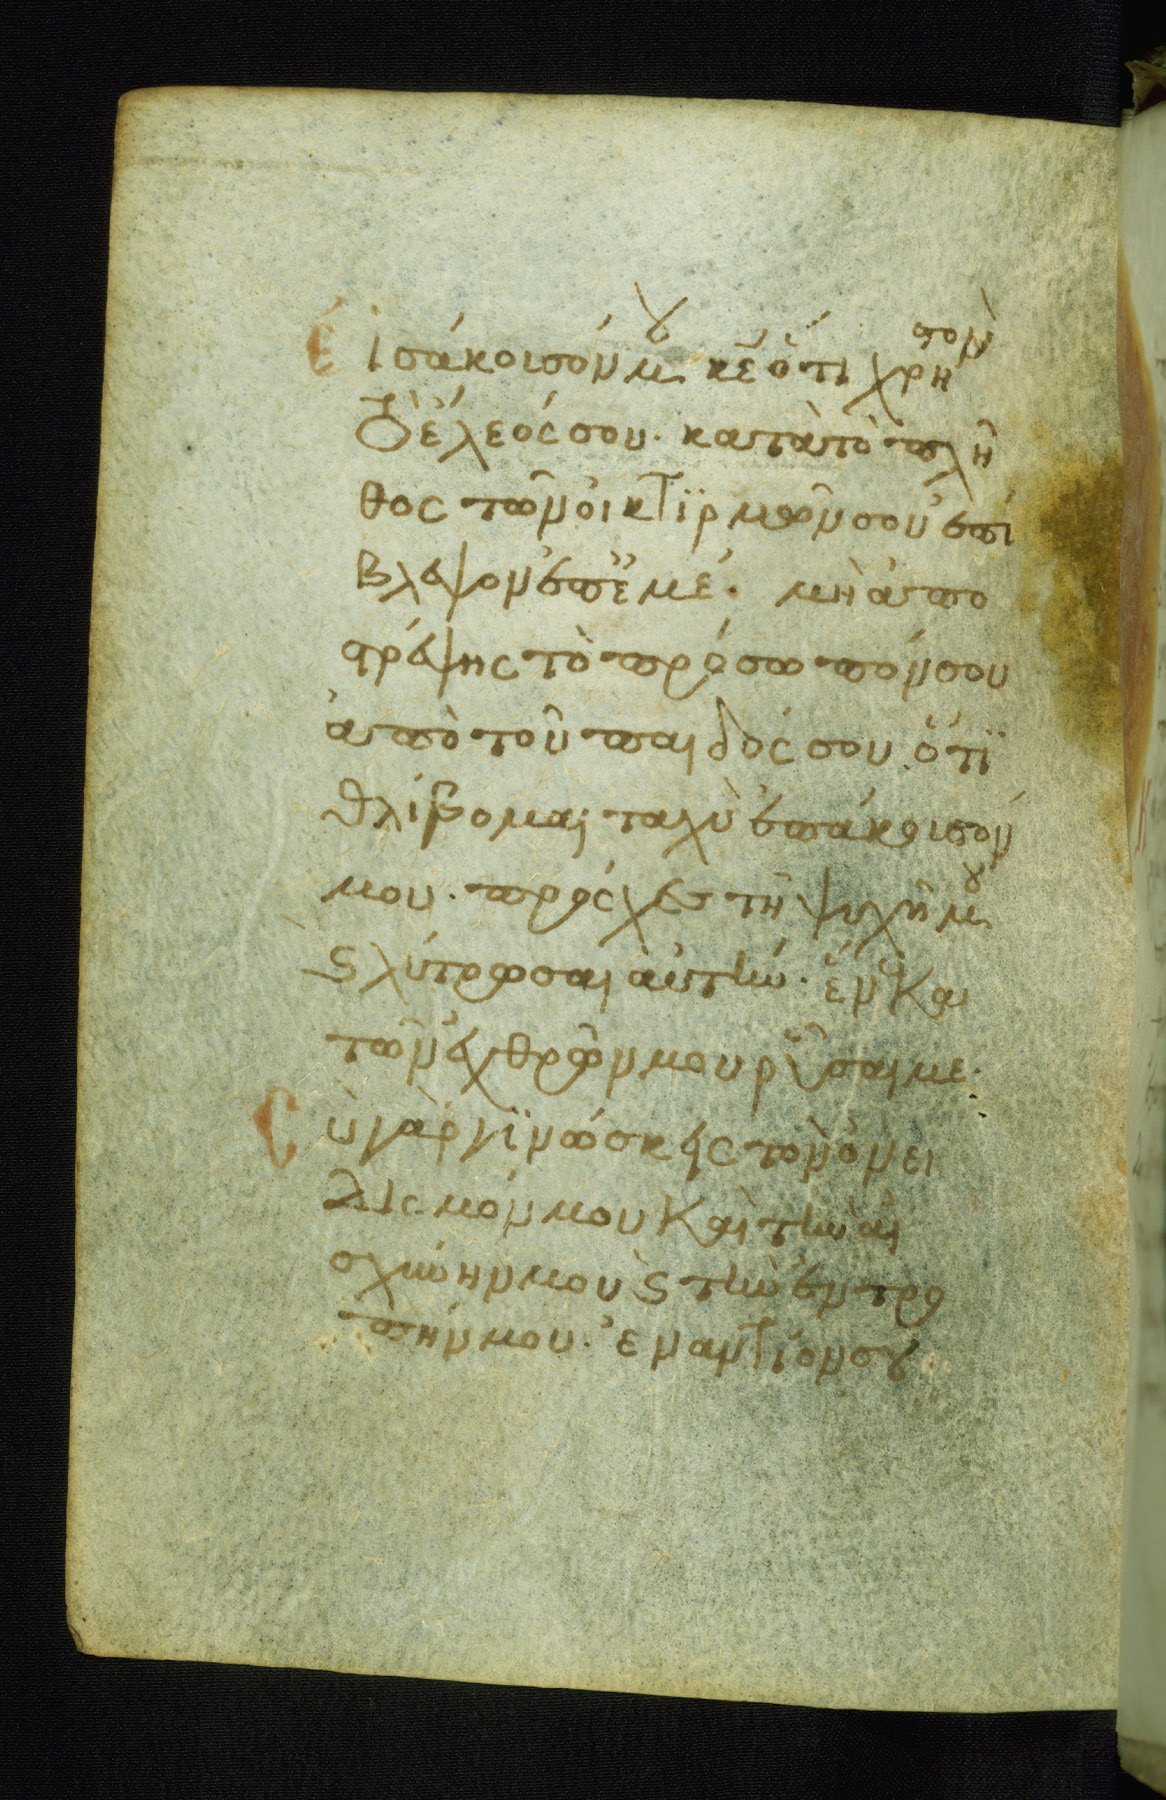 Εἰσάκοισόν μου κε ὅτι χρηστὸν
τὸ ἔλεός σου. κατὰ τὸ πλῆ
θος τῶν οἰκτϊρμῶν σου ἐπί
βλεψον ἐπ ἐμέ. μὴ ἀπο
στρέψης τὸ πρόσωπόν σου
ἀπὸ τοῦ παιδός σου. ὅτϊ
θλίβομαι ταχὺ ἐπάκοισόν
μου. πρόσχες τῆ ψυχῆ μου
ϛ λύτρωσαι αὐτήν. ἕνεκα
τῶν ἐχθρῶν μου ρῦσαι με.
Σὺ γὰρ γϊνώσκεις τὸν ὀνει
δισμόν μου καὶ τὴν αἰ
σχύνην μου ϛ τὴν ἐντρο
πήν μου. ἐναντίον σου